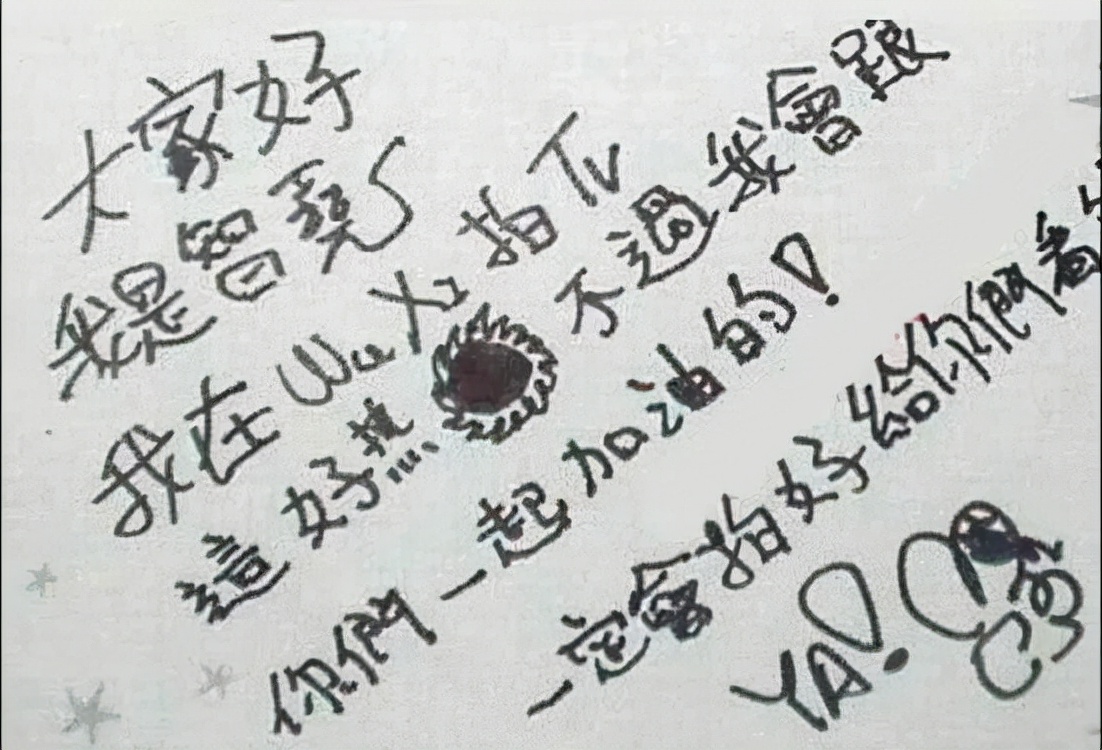 大家好
我是智堯
我在 Wu Xi 拍 TV
這好熱 不過我會跟
你們一起加油的!
一定會拍好給你們看
YA!